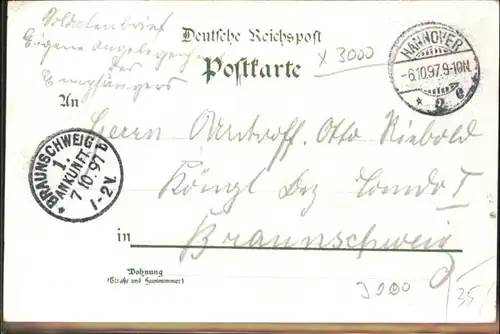 Soldatenbrief
Eigene Angelegenheit
des
Empfängers
Deutsche Reichspost
Postkarte
x 3000
HANNOVER
-6.10.97.9-10N.
* 2 a
An
Herrn Otto
BRAUNSCHWEIG
1.
ANKUNFT
7.10.97
1-2V.
Königl Bez I
in Braunschweig
Wohnung
(Straße und Hausnummer)
35